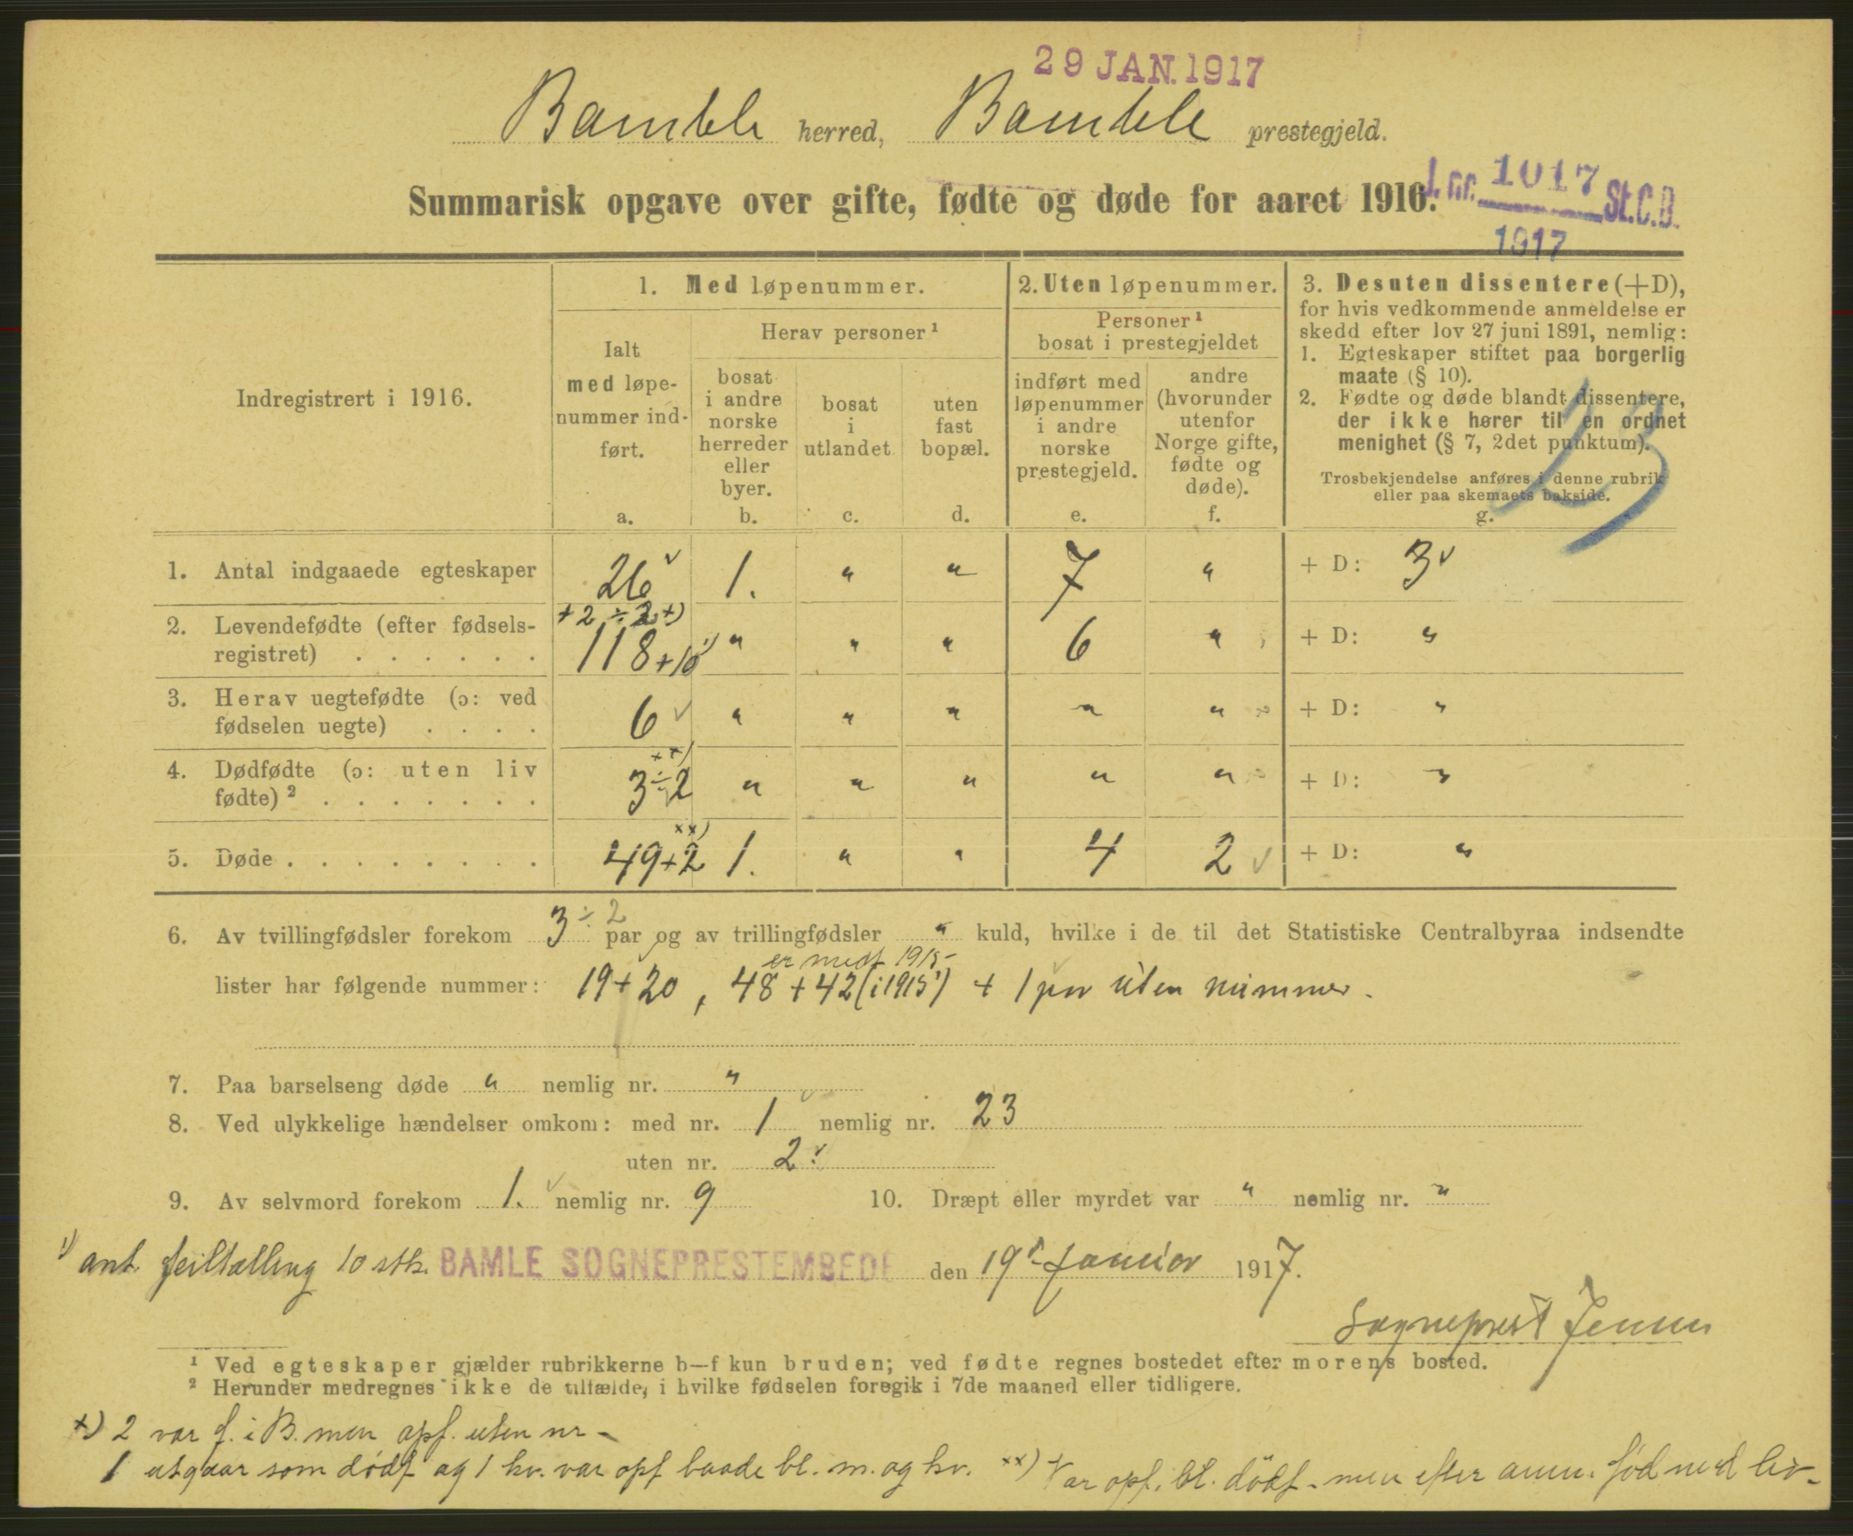 29 JAN. 1917
Bamble herred, Bamble prestegjeld.
Summarisk opgave over gifte, fødte og døde for aaret 1916.
J. nr. 1017 St.C.B.
1917
Indregistrert i 1916.
1. Med løpenummer.
Ialt
med løpe-
nummer ind-
ført.
a.
Herav personer ¹
bosat
i andre
norske
herreder
eller
byer.
b.
bosat
i
utlandet
c.
uten
fast
bopæl.
d.
2. Uten løpenummer.
Personer ¹
bosat i prestegjeldet
indført med
løpenummer
i andre
norske
prestegjeld.
e.
andre
(hvorunder
utenfor
Norge gifte,
fødte og
døde).
f.
3. Desuten dissentere (+D),
for hvis vedkommende anmeldelse er
skedd efter lov 27 juni 1891, nemlig:
1. Egteskaper stiftet paa borgerlig
maate (§ 10).
2. Fødte og døde blandt dissentere,
der ikke hører til en ordnet
menighet (§ 7, 2det punktum).
Trosbekjendelse anføres i denne rubrik
eller paa skemaets bakside.
g.
23
1. Antal indgaaede egteskaper 26 1. " " 7 " + D: 3
+2 ÷2 x)
2. Levendefødte (efter fødsels-
registret) 118+10 ¹) " " " 6 " + D: "
3. Herav uegtefødte (ɔ: ved
fødselen uegte) 6 " " " " " + D: "
4. Dødfødte (ɔ: uten liv
fødte) ² 3÷2 xx) " " " " " + D: "
5. Døde 49+2 xx) 1. " " 4 2 + D: "
6. Av tvillingfødsler forekom 3 ÷ 2 par og av trillingfødsler " kuld, hvilke i de til det Statistiske Centralbyraa indsendte
er medt 1915
lister har følgende nummer: 19+20, 48+42 (i 1915) + 1 par uten nummer.
7. Paa barselseng døde " nemlig nr. "
8. Ved ulykkelige hændelser omkom: med nr. 1 nemlig nr. 23
uten nr. 2.
9. Av selvmord forekom 1. nemlig nr. 9 10. Dræpt eller myrdet var " nemlig nr. "
¹) ant. feiltælling 10 stk. BAMLE SOGNEPRESTEMBEDE den 19' Januar 1917.
Sogneprest Jensen
¹ Ved egteskaper gjælder rubrikkerne b—f kun bruden; ved fødte regnes bostedet efter morens bosted.
² Herunder medregnes ikke de tilfælde, i hvilke fødselen foregik i 7de maaned eller tidligere.
x) 2 var f. i B. men opf. uten nr -
1 utgaar som dødf og 1 kv. var opf baade bl. m. og kv. xx) Var opf. bl. dödf. men efter anm. fød med liv -